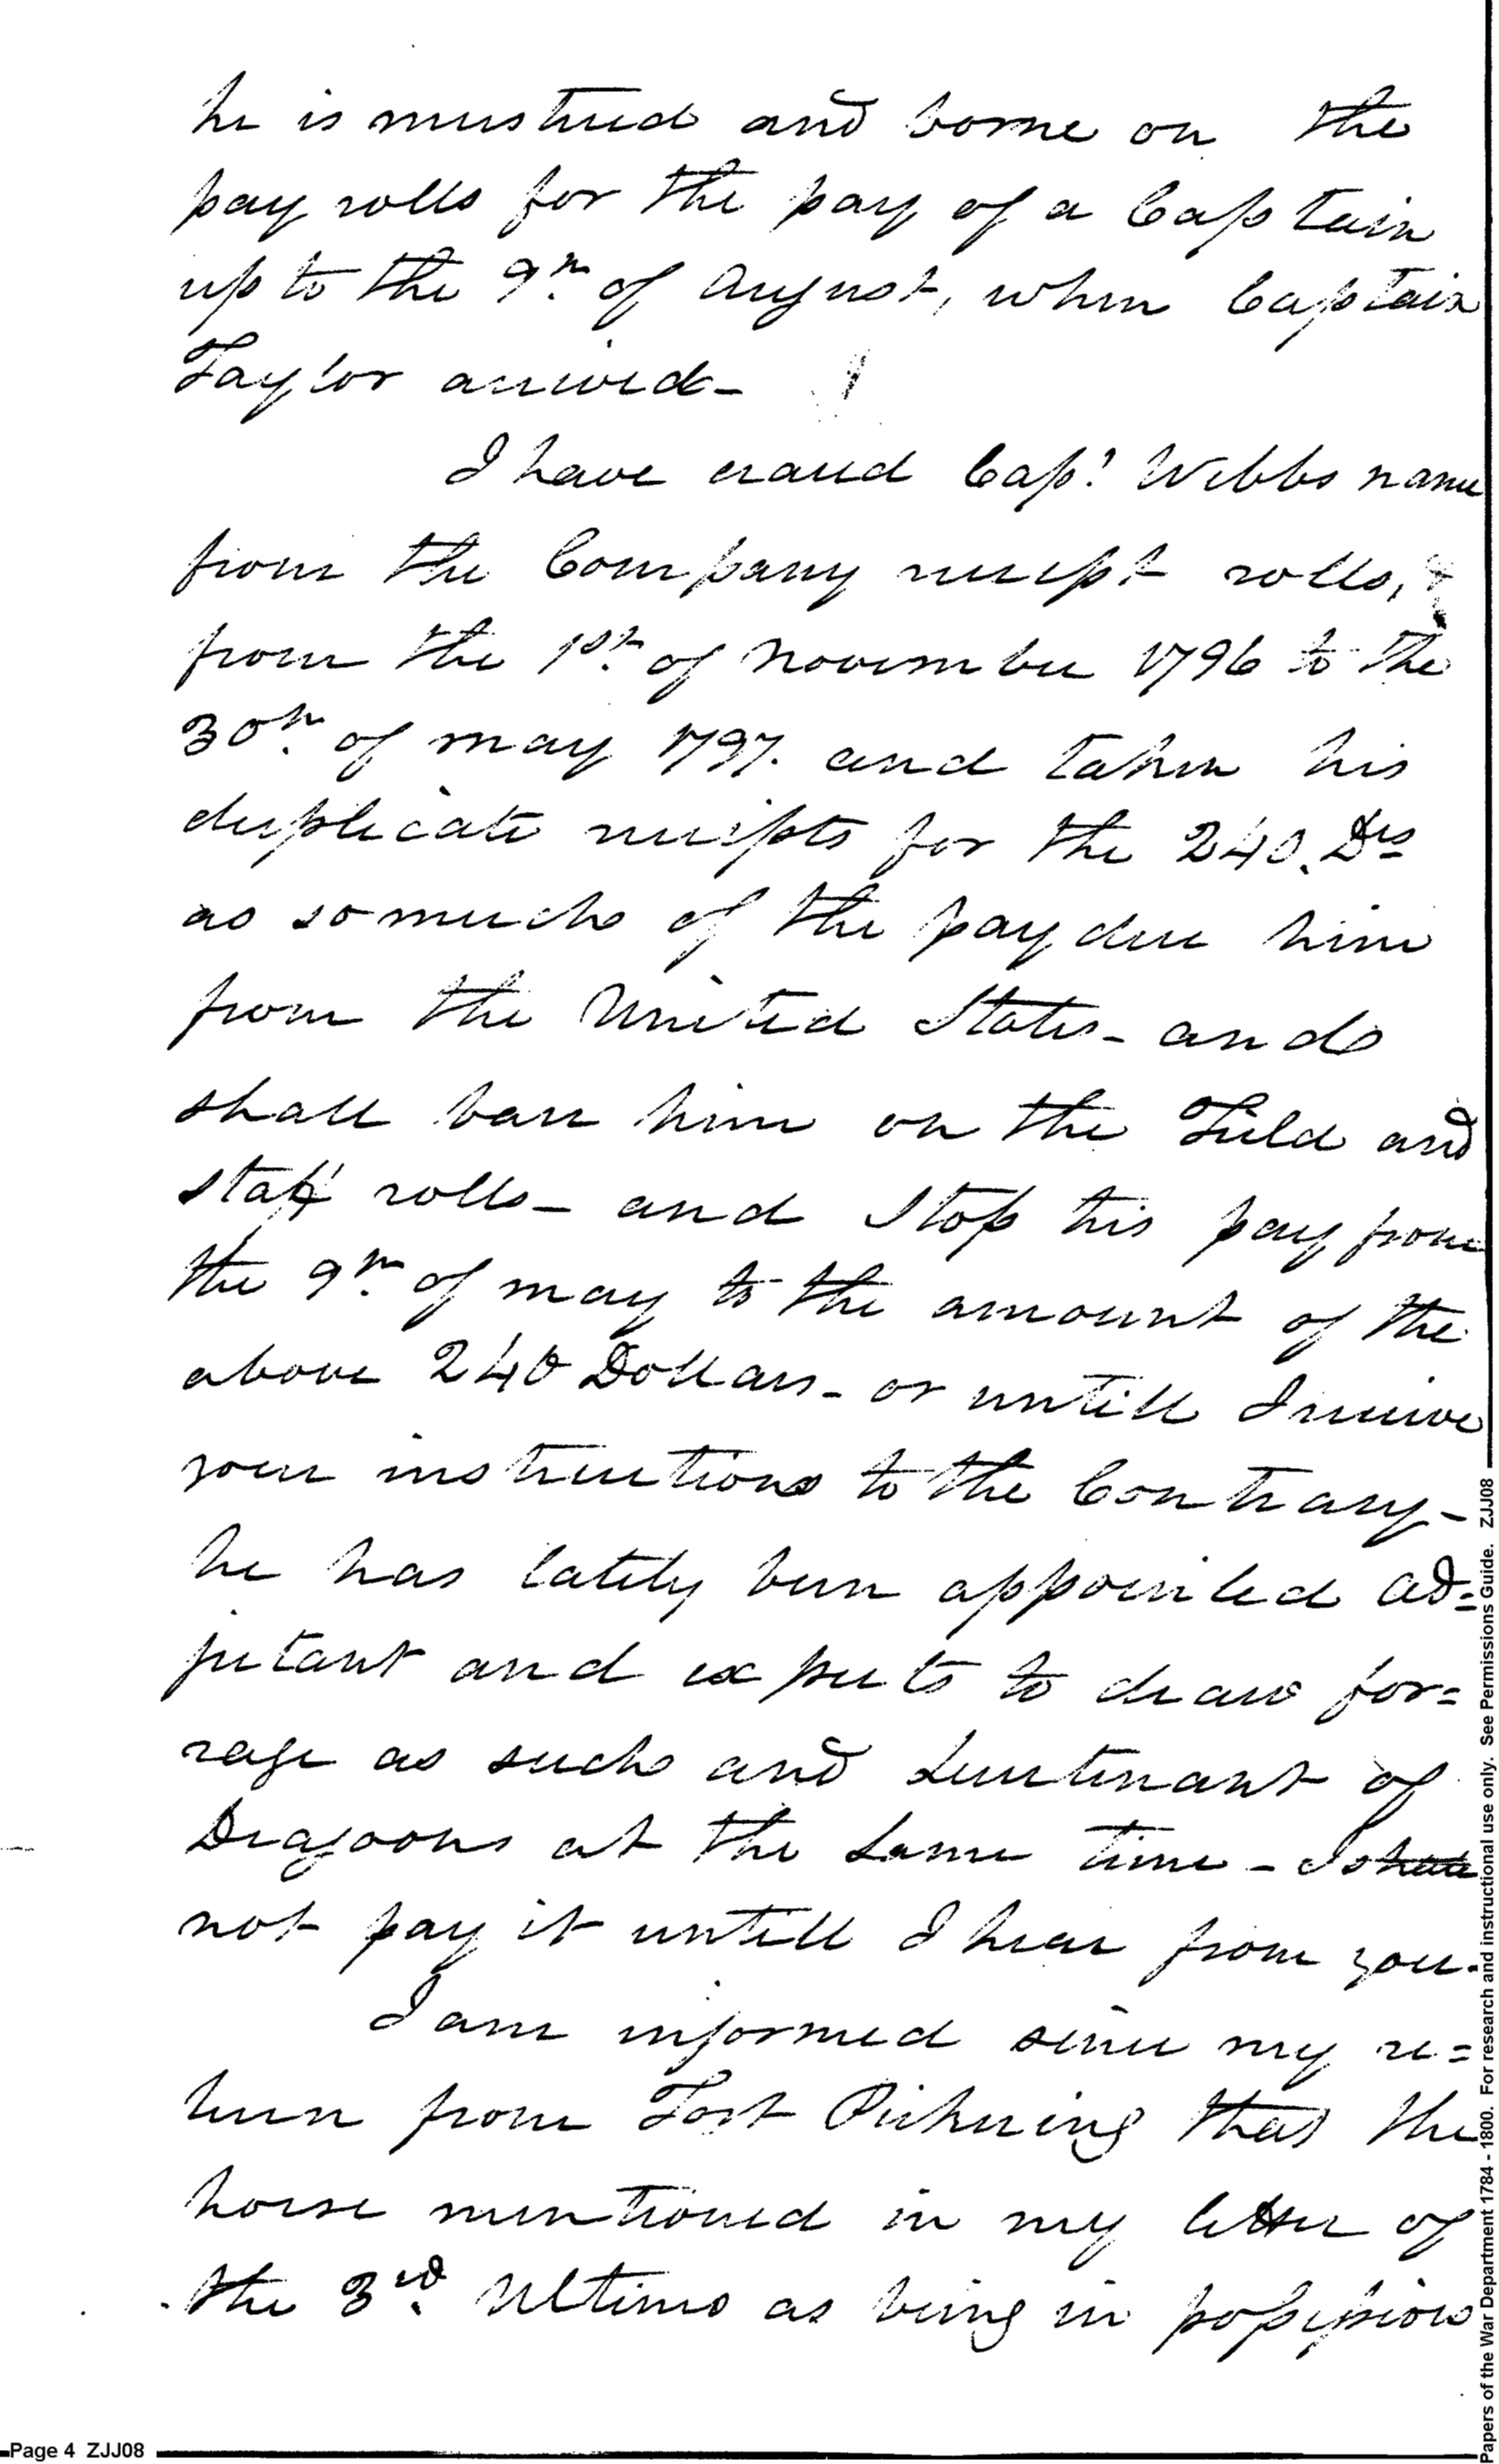 he is mustred and borne on the
pay rolls for the pay of a Captain
up to the 9th of August, when Captain
Taylor arrived-
I have erased Capt Webbs name
from the Company receipt rolls, &
from the 1st of November 1796 to the
30th of may 1797. and taken his
duplicate receipts for the 240. Drs
as so much of the pay due him
from the United States - and
shall barr him on the Field and
staff rolls - and stop his pay from
the 9th of may to the amount of the
above 240 Dollars - or untill I receive
your instructions to the Contrary -
he has lately been appointed ad=
jutant and expects to draw for=
rage as such and Lieutenant of
Dragoons at the same time - I shall
not pay it untill I hear from you.
I am informed since my re=
turn from Fort Pickering that the
horse mentioned in my letter of
the 3rd Ultimo as being in possession
Page 4 ZJJ08
Papers of the War Department 1784 - 1800. For research and instructional use only. See Permissions Guide. ZJJ08